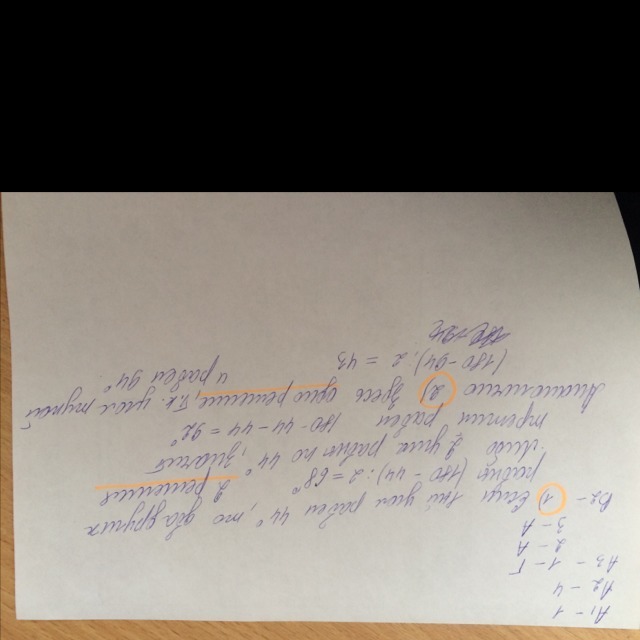 A1 - 1
A2 - 4
A3 - 1 - Г
2 - А
3 - А
B2 - 1) Если 1ый угол равен 44°, то два других
равны (180 - 44) : 2 = 68°
2 решения
либо 2 угла равны по 44°, значит
третий равен 180 - 44 - 44 = 92°
Аналогично 2) здесь одно решение, т.к. угол тупой
и равен 94°
(180 - 94) : 2 = 43